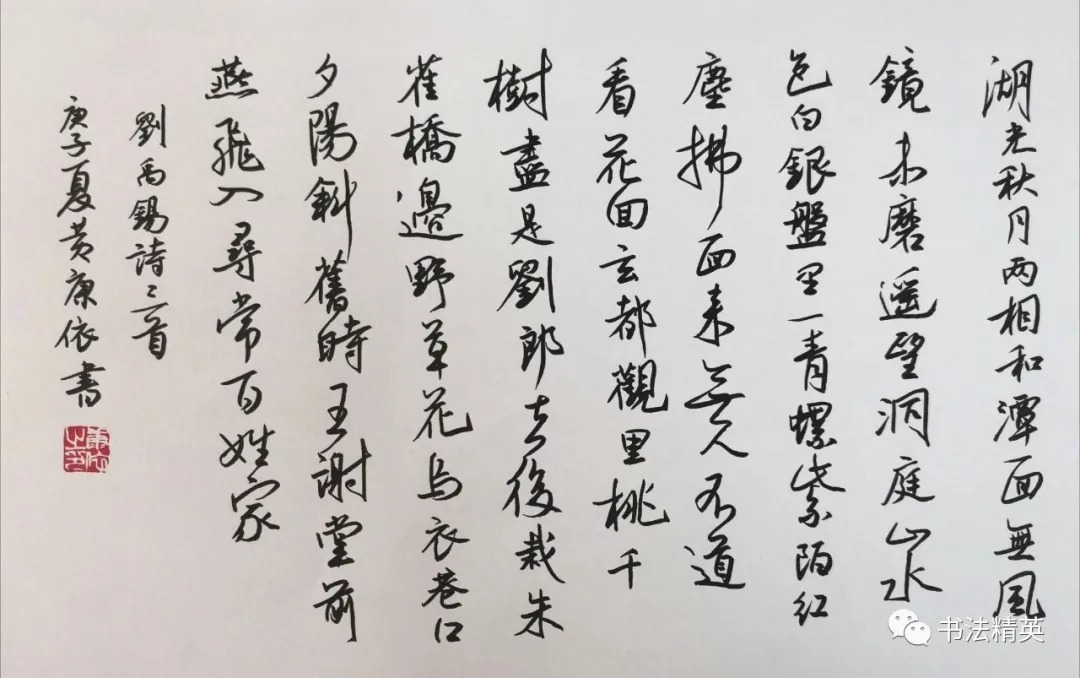 湖光秋月两相和潭面無風
鏡未磨遥望洞庭山水
色白銀盤里一青螺紫陌紅
塵拂面来無人不道
看花回玄都觀里桃千
樹盡是劉郎去後栽朱
雀橋邊野草花烏衣巷口
夕陽斜舊時王謝堂前
燕飛入尋常百姓家
劉禹錫詩三首
庚子夏黄康依書
康依之印
书法精英